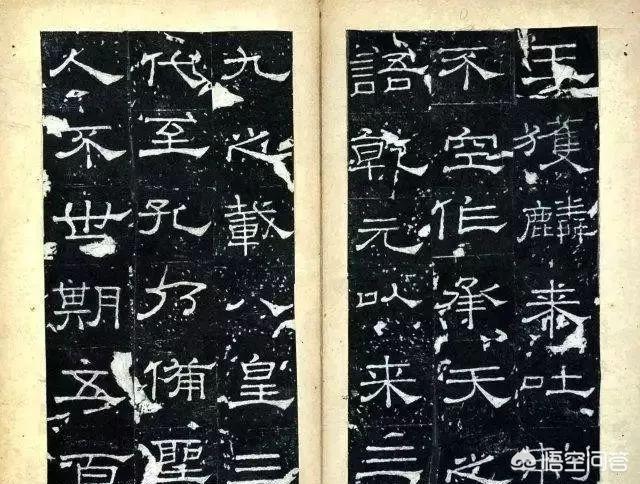 王獲麟来吐
不空作承天之
語乾元以来三
九之載八皇三
代至孔乃備聖
人不世期五百
悟空问答